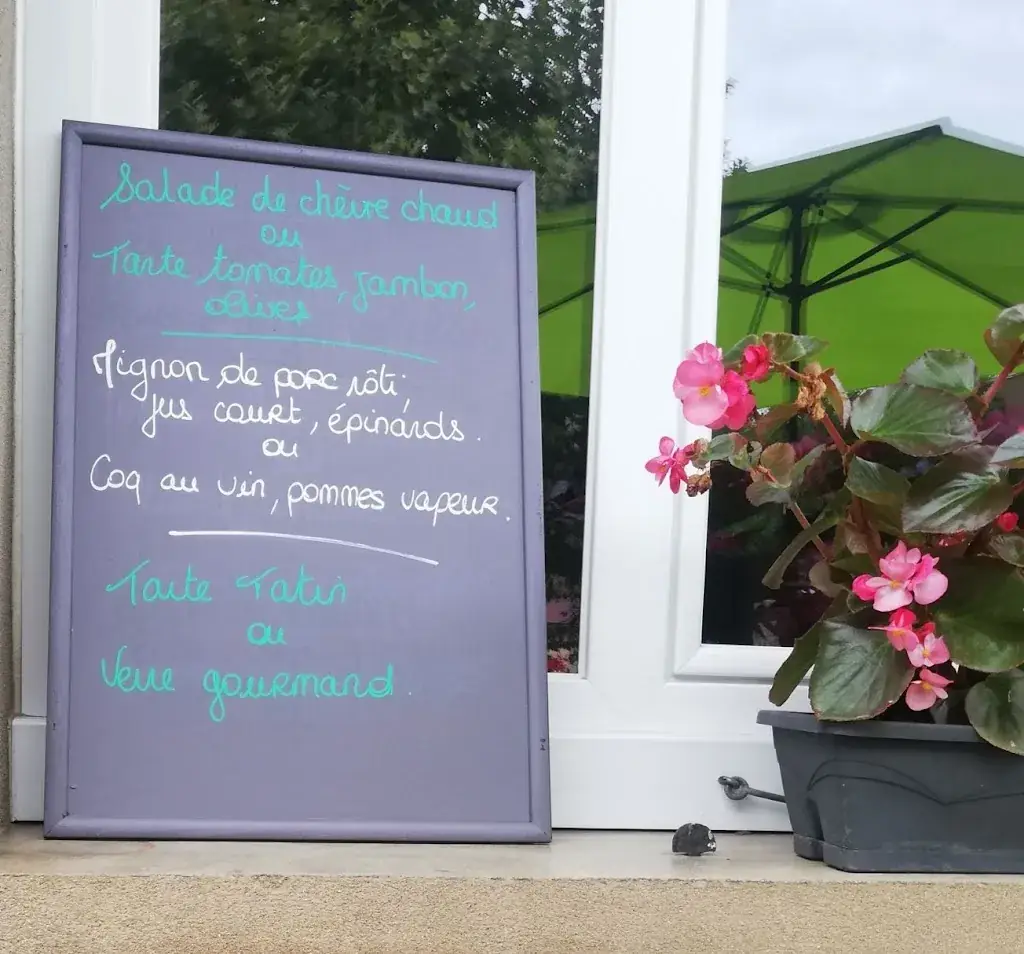 Salade de chèvre chaud
ou
Tarte tomates, jambon,
olives
Mignon de porc rôti,
jus court, épinards.
ou
Coq au vin, pommes vapeur.
Tarte Tatin
ou
Verre gourmand.